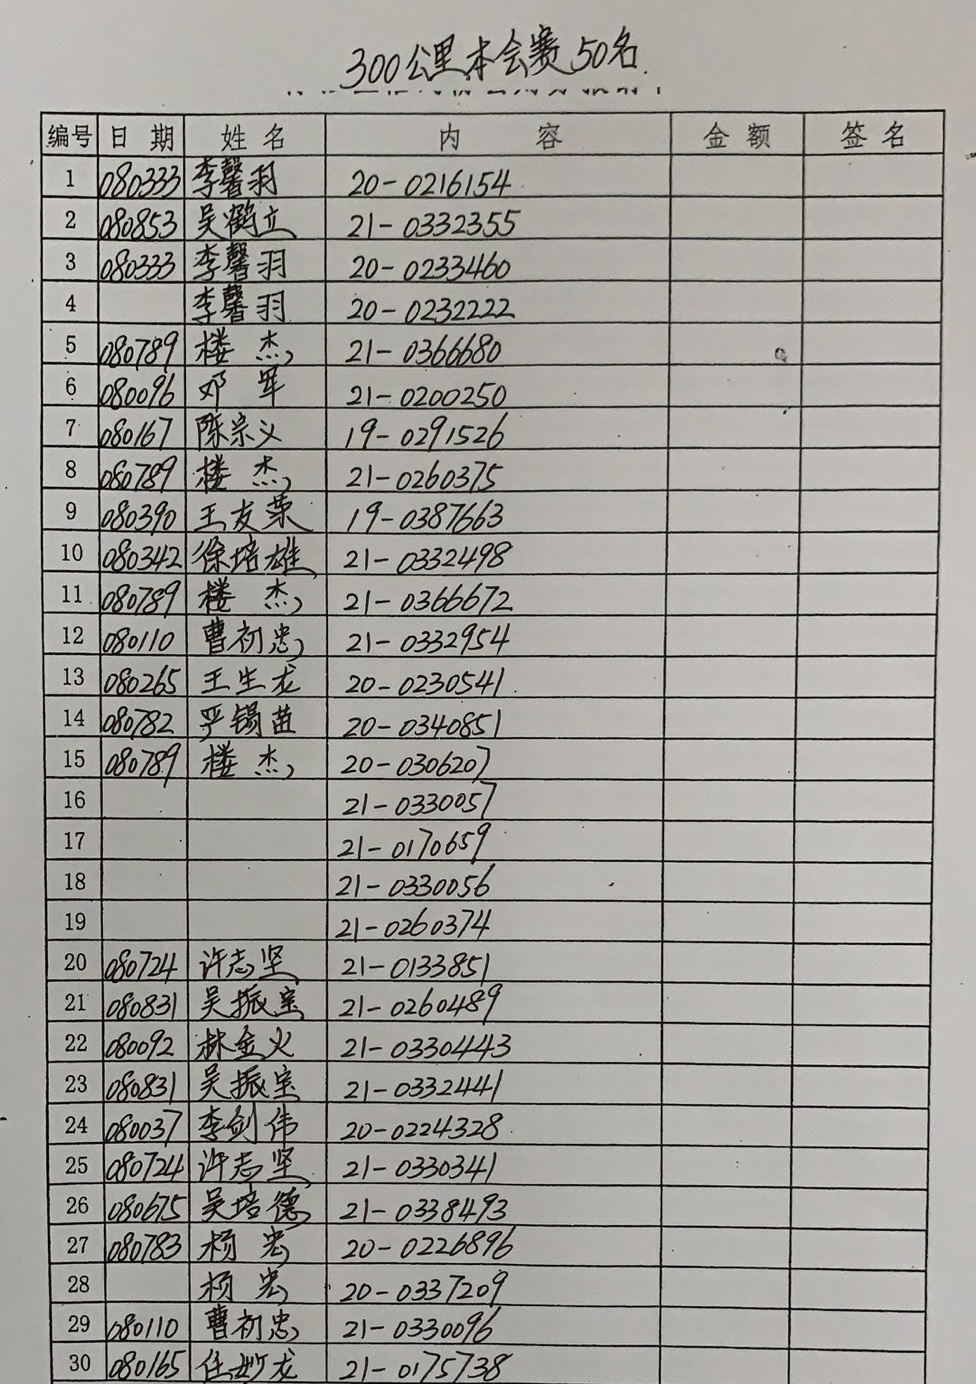 300公里本会赛50名
编号 日期 姓名 内容 金额 签名
1 080333 李馨羽 20-0216154
2 080853 吴鹤立 21-0332355
3 080333 李馨羽 20-0233460
4 李馨羽 20-0232222
5 080789 楼杰 21-0366680
6 080096 邓军 21-0200250
7 080167 陈宗义 19-0291526
8 080789 楼杰 21-0260375
9 080390 王友荣 19-0387663
10 080342 徐培雄 21-0332498
11 080789 楼杰 21-0366672
12 080110 曹初忠 21-0332954
13 080265 王生龙 20-0230541
14 080782 严锡苗 20-0340851
15 080789 楼杰 20-0306207
16 21-0330057
17 21-0170659
18 21-0330056
19 21-0260374
20 080724 许志坚 21-0133851
21 080831 吴振宝 21-0260489
22 080092 林金火 21-0330443
23 080831 吴振宝 21-0332441
24 080037 李剑伟 20-0224328
25 080724 许志坚 21-0330341
26 080675 吴培德 21-0338493
27 080783 杨宏 20-0226896
28 杨宏 20-0337209
29 080110 曹初忠 21-0330096
30 080165 任妙龙 21-0175738